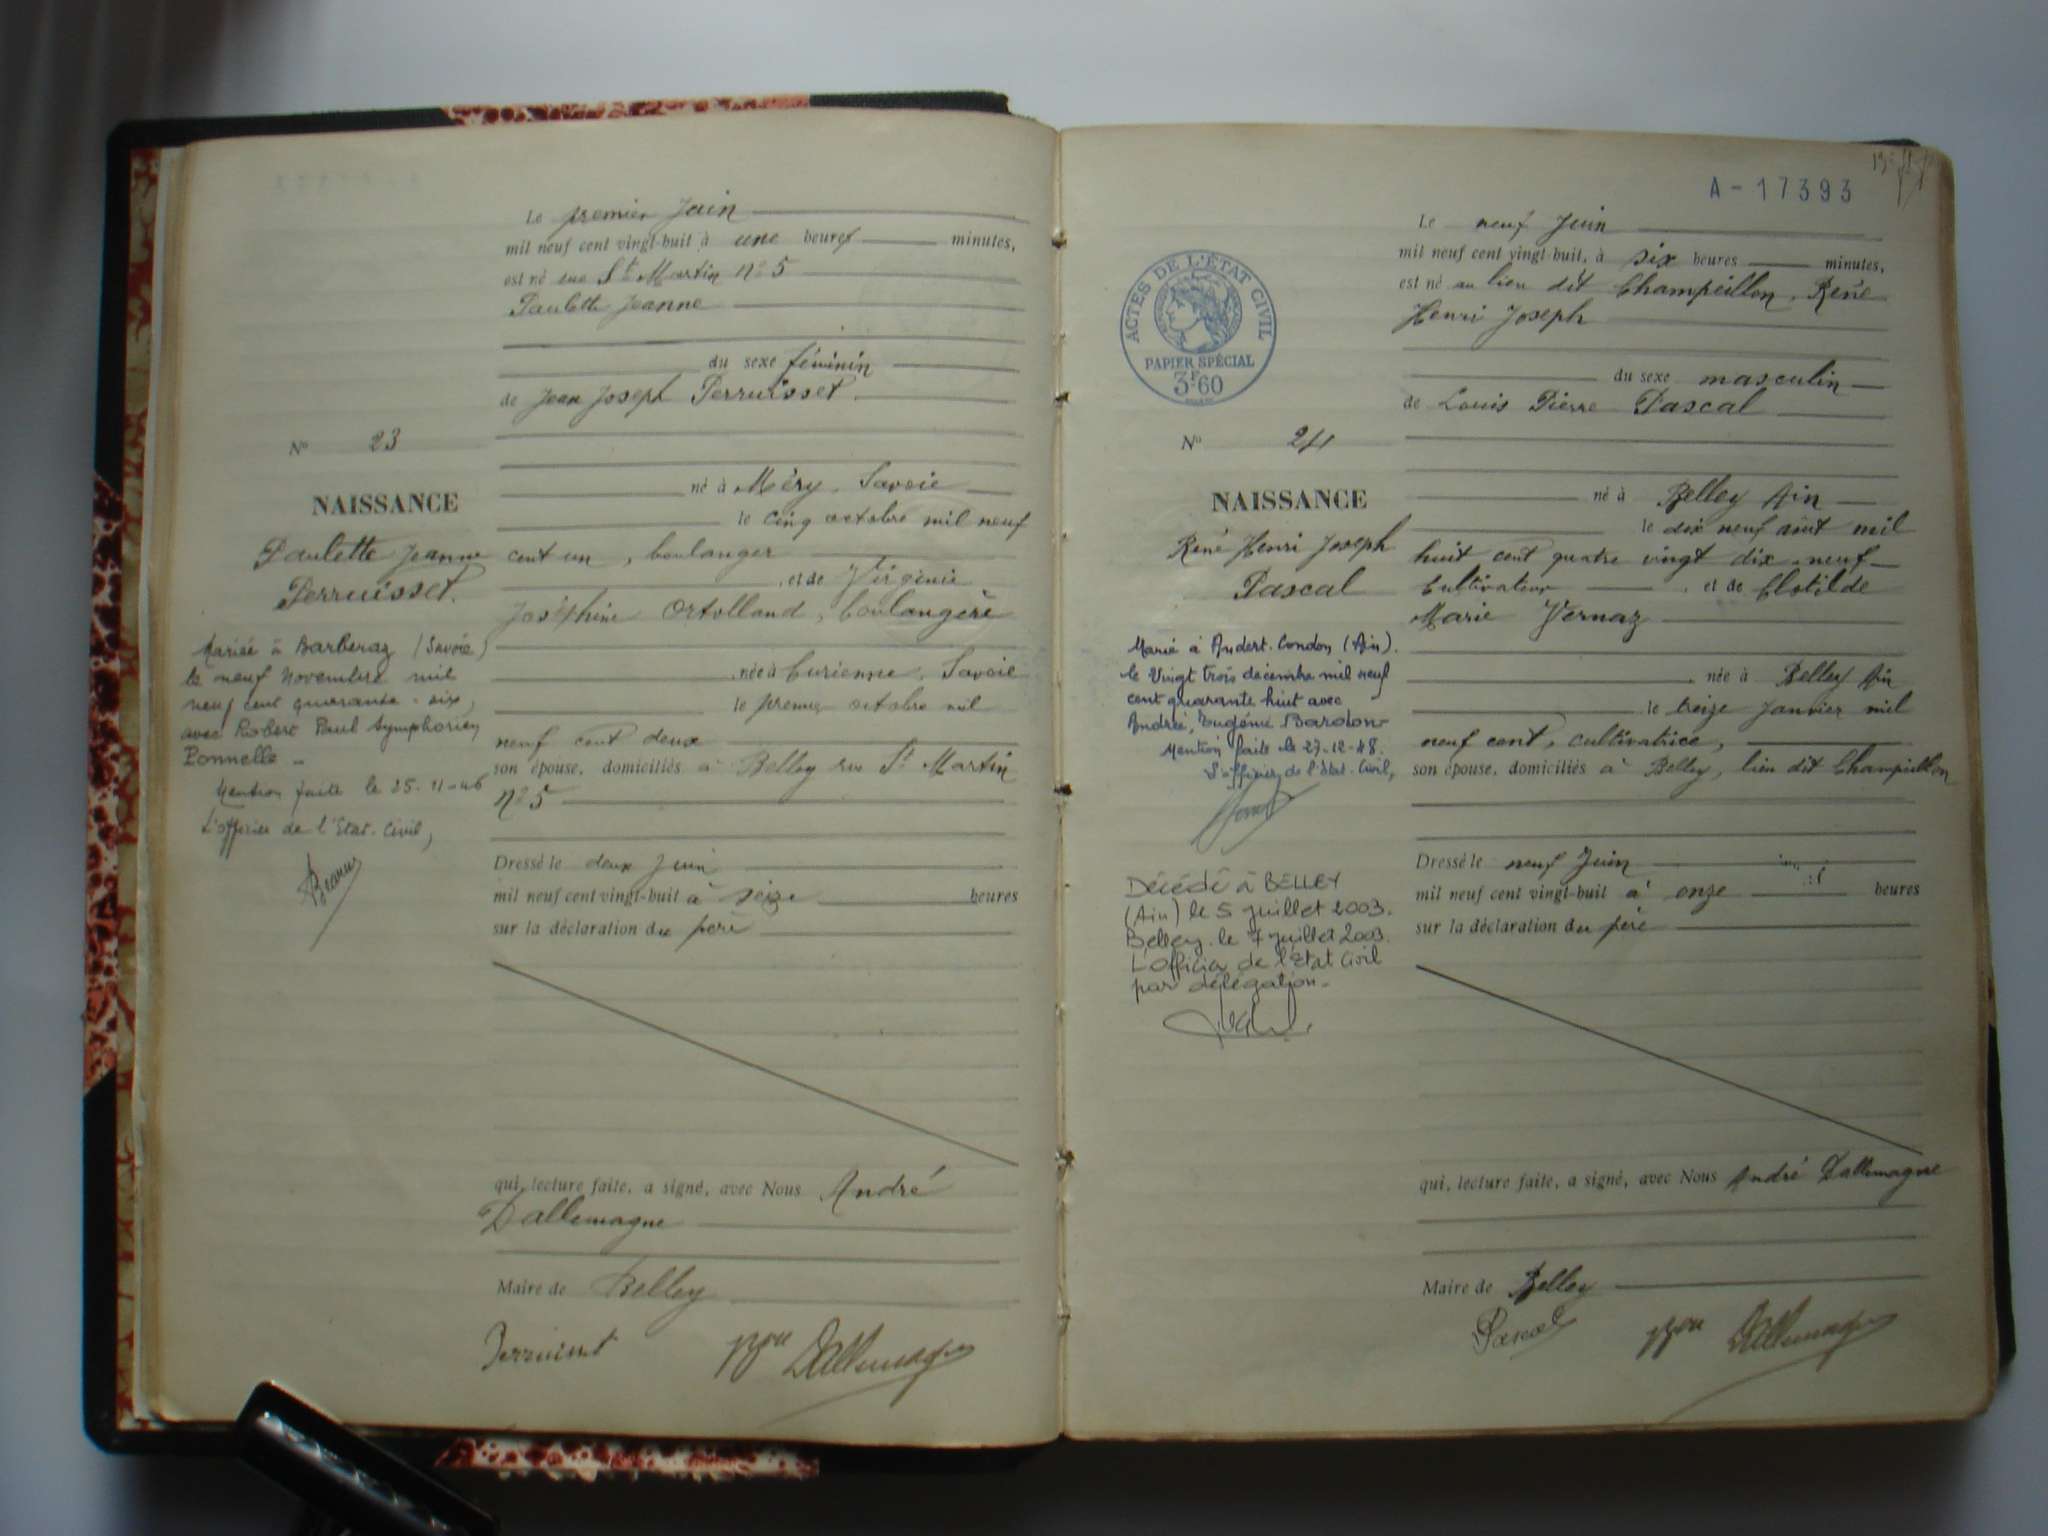 Le premier Juin
mil neuf cent vingt-huit à une heures minutes,
est né rue St Martin n° 5
Paulette Jeanne
du sexe féminin
de Jean Joseph Perruisset.
N° 23
né à Méry. Savoie
NAISSANCE
le cinq octobre mil neuf
Paulette Jeanne
Perruisset.
cent un, boulanger
et de Virginie
Joséphine Ortolland, boulangère
née à Curienne. Savoie
le premier octobre mil
neuf cent deux
son épouse, domiciliés à Belley rue St Martin
n° 5
Mariée à Barberaz (Savoie)
le neuf Novembre mil
neuf cent quarante-six,
avec Robert Paul Symphorien
Ponnelle -
Mention faite le 25-11-46
L'officier de l'Etat-Civil,
Dressé le deux Juin
mil neuf cent vingt-huit à seize heures
sur la déclaration du père
qui, lecture faite, a signé, avec Nous André
Dallemagne
Maire de Belley
Perruisset Dallemagne
A-17393
Le neuf Juin
mil neuf cent vingt-huit, à six heures minutes,
est né au lieu dit Champeillon, René
Henri Joseph
du sexe masculin
de Louis Pierre Pascal
ACTES DE L'ÉTAT CIVIL
PAPIER SPÉCIAL
3F60
N° 24
né à Belley Ain
NAISSANCE
le dix neuf août mil
René Henri Joseph
Pascal
huit cent quatre vingt dix-neuf
Cultivateur et de Clotilde
Marie Vernaz
née à Belley Ain
le treize Janvier mil
neuf cent, cultivatrice,
son épouse, domiciliés à Belley, lieu dit Champeillon
Marié à Andert-Condon (Ain).
le Vingt trois décembre mil neuf
cent quarante huit avec
Andrée, Eugénie Barolon-
Mention faite le 27-12-48.
L'officier de l'état-Civil,
Décédé à BELLEY
(Ain) le 5 juillet 2003.
Belley. le 7 juillet 2003.
L'officier de l'Etat Civil
par délégation-
Dressé le neuf Juin
mil neuf cent vingt-huit à onze heures
sur la déclaration du père
qui, lecture faite, a signé, avec Nous André Dallemagne
Maire de Belley
Pascal Dallemagne